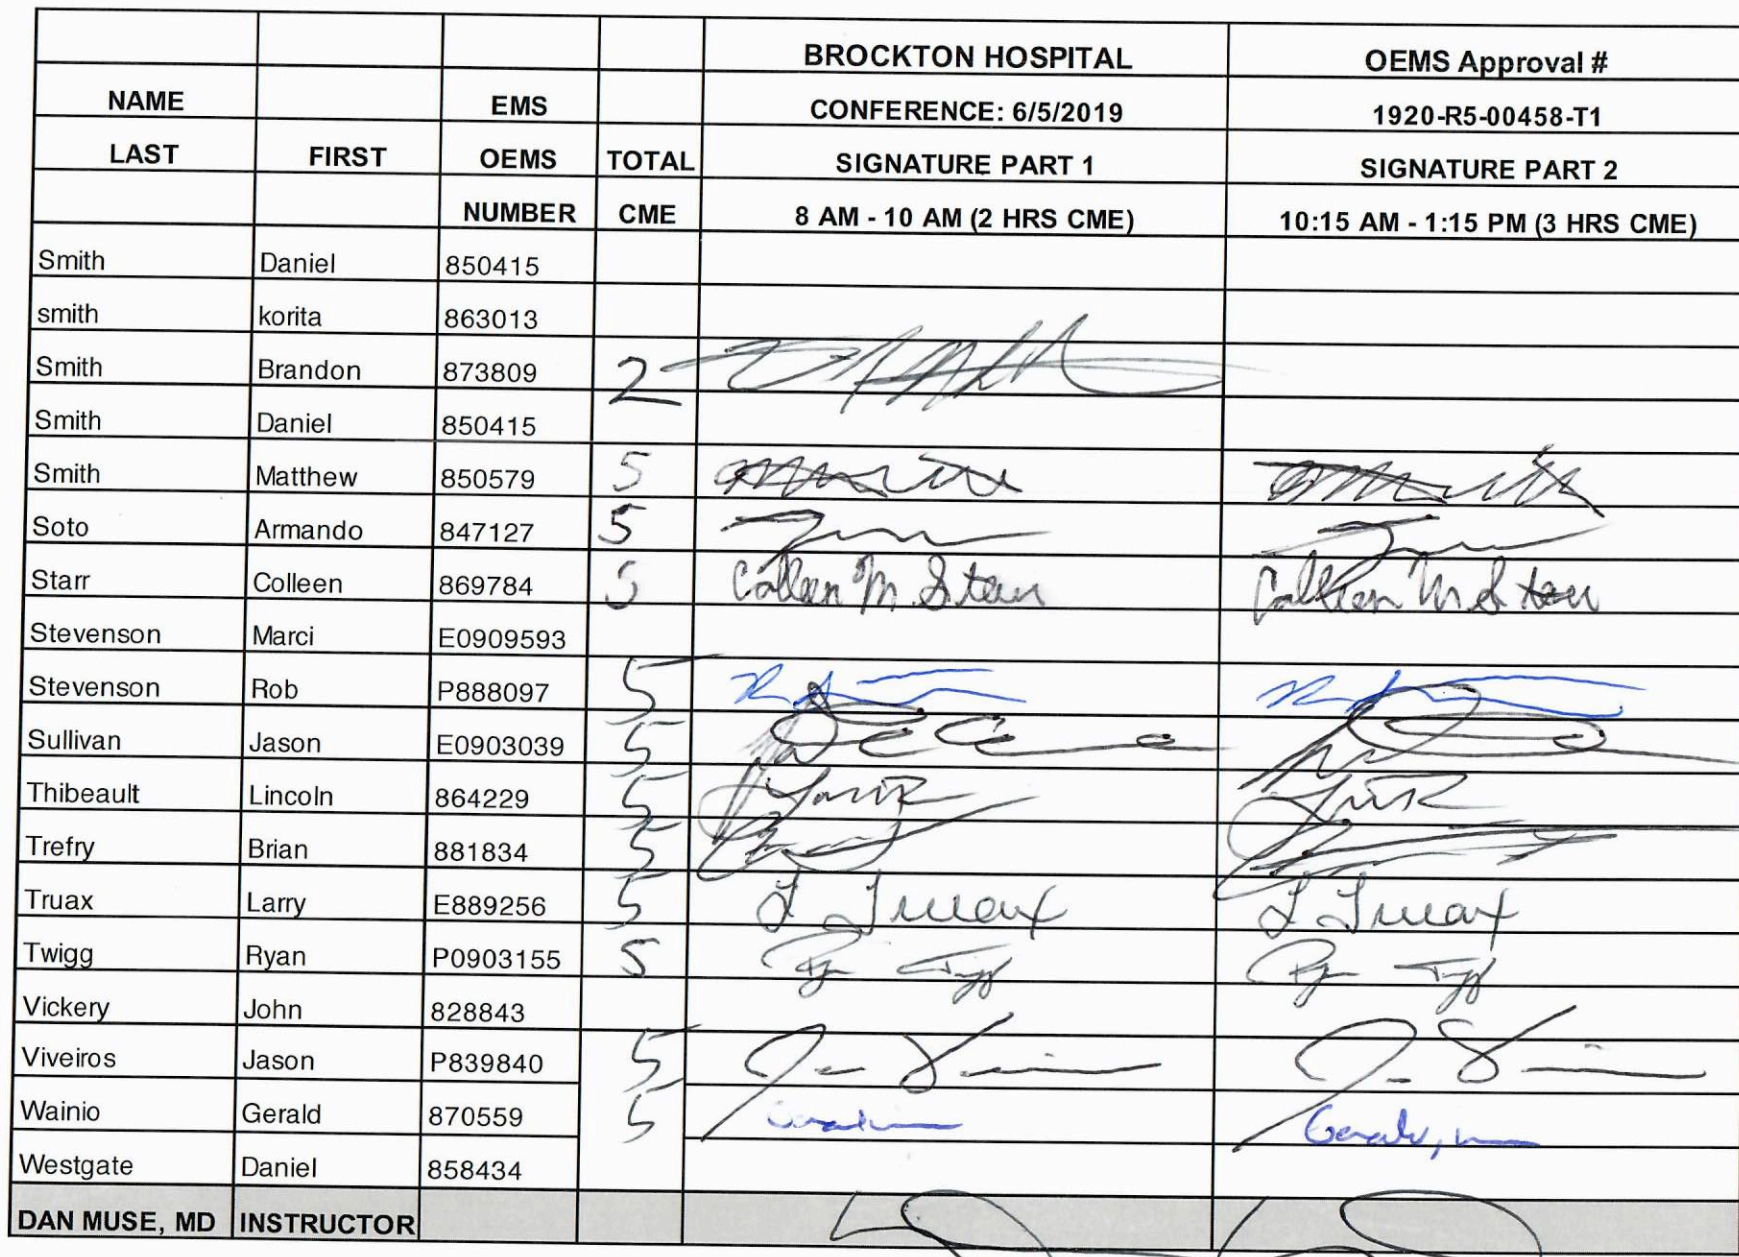 BROCKTON HOSPITAL OEMS Approval #
NAME EMS CONFERENCE: 6/5/2019 1920-R5-00458-T1
LAST FIRST OEMS TOTAL SIGNATURE PART 1 SIGNATURE PART 2
NUMBER CME 8 AM - 10 AM (2 HRS CME) 10:15 AM - 1:15 PM (3 HRS CME)
Smith Daniel 850415
smith korita 863013
Smith Brandon 873809 2
Smith Daniel 850415
Smith Matthew 850579 5
Soto Armando 847127 5
Starr Colleen 869784 5 Colleen M. Starr Colleen M Starr
Stevenson Marci E0909593
Stevenson Rob P888097 5
Sullivan Jason E0903039 5
Thibeault Lincoln 864229 5
Trefry Brian 881834 5
Truax Larry E889256 5 L Truax L Truax
Twigg Ryan P0903155 5
Vickery John 828843
Viveiros Jason P839840 5
Wainio Gerald 870559 5
Westgate Daniel 858434
DAN MUSE, MD INSTRUCTOR